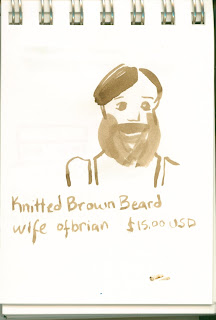 Knitted Brown Beard
wife ofbrian $15.00 USD